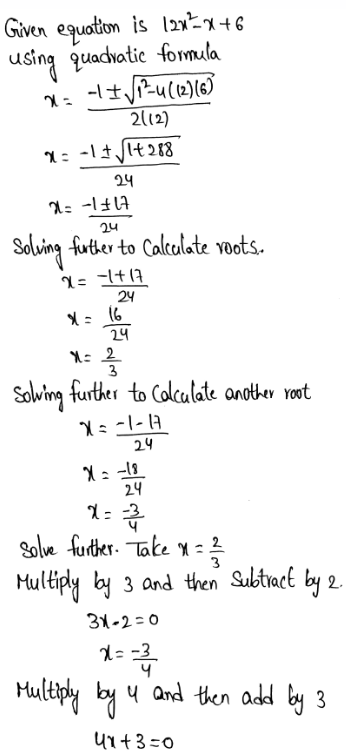 Given equation is 12x²-x+6
using quadratic formula
x = -1±√1²-4(12)(6) / 2(12)
x = -1±√1+288 / 24
x = -1±17 / 24
Solving further to Calculate roots.
x = -1+17 / 24
x = 16 / 24
x = 2 / 3
Solving further to Calculate another root
x = -1-17 / 24
x = -18 / 24
x = -3 / 4
Solve further. Take x = 2 / 3
Multiply by 3 and then Subtract by 2.
3x-2=0
x = -3 / 4
Multiply by 4 and then add by 3
4x+3=0